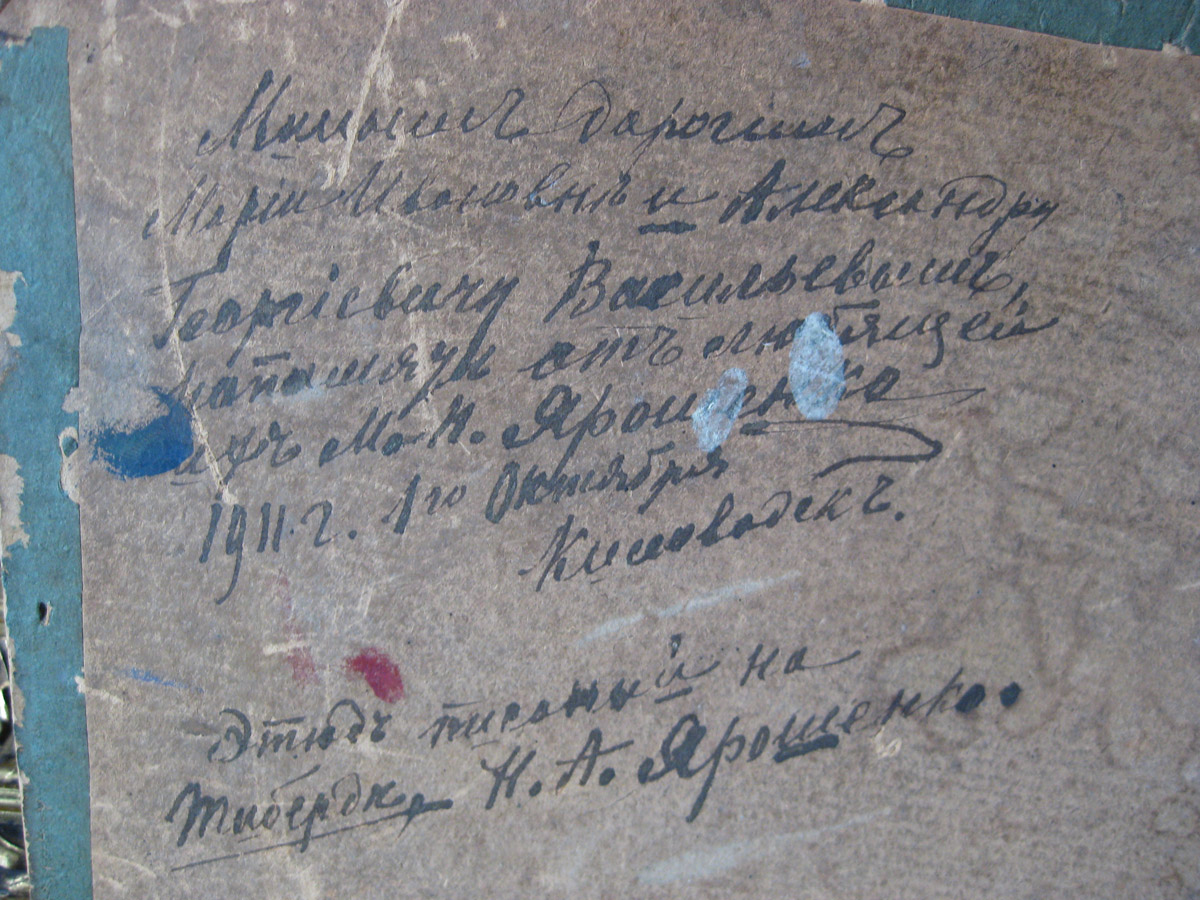 Милымъ дорогимъ
Маріи Ивановнѣ и Александру
Георгіевичу Васильевымъ,
на память отъ любящей
ихъ М. П. Ярошенко
1911 г. 1го Октября
Кисловодскъ.
Этюдъ писаный на
Тибердѣ, Н. А. Ярошенко.